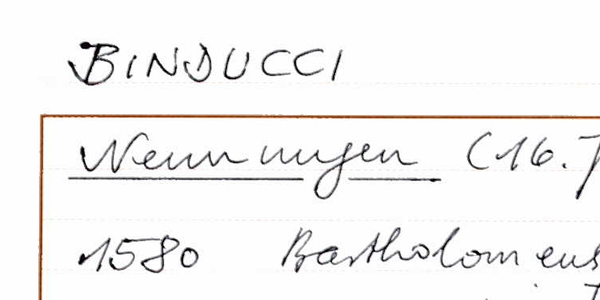 BINDUCCI
Nennungen (16. J
1580 Bartholomeus